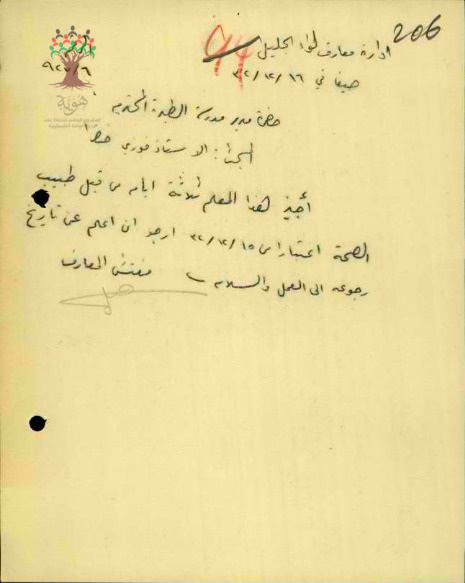 206
ادارة معارف لواء الجليل
94
حيفا في ١٦/١٢/٣٢
هوية
حضرة مدير مدرسة الطيرة المحترم
المبحث: الاستاذ فوزي
أجيز لهذا المعلم ثلاثة ايام من قبل طبيب
الصحة اعتبارا من ١٥/١٢/٣٢ ارجو ان اعلم عن تاريخ
رجوعه الى العمل والسلام
مفتش المعارف